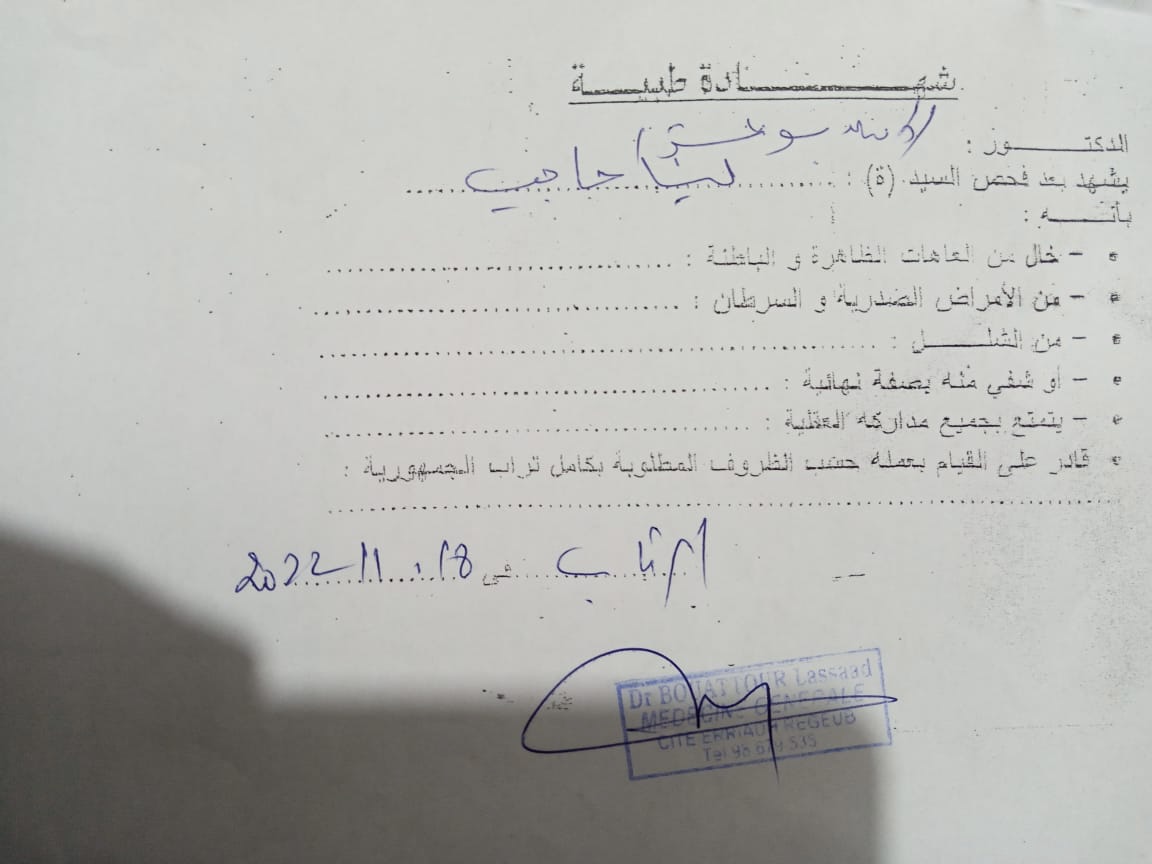 شهادة طبية
الدكتور :
يشهد بعد فحص السيد (ة) : لينا حاجي
بأنه :
• - خال من العاهات الظاهرة و الباطنة :
• - من الأمراض الصدرية و السرطان :
• - من الشلل :
• - أو شفي منه بصفة نهائية :
• - يتمتع بجميع مداركه العقلية :
• قادر على القيام بعمله حسب الظروف المطلوبة بكامل تراب الجمهورية :
في 2022/11/18
Dr BOUATTOUR Lassaad
MEDECINE GENERALE
CITE ERRIADH REGEUB
Tel 98 679 535